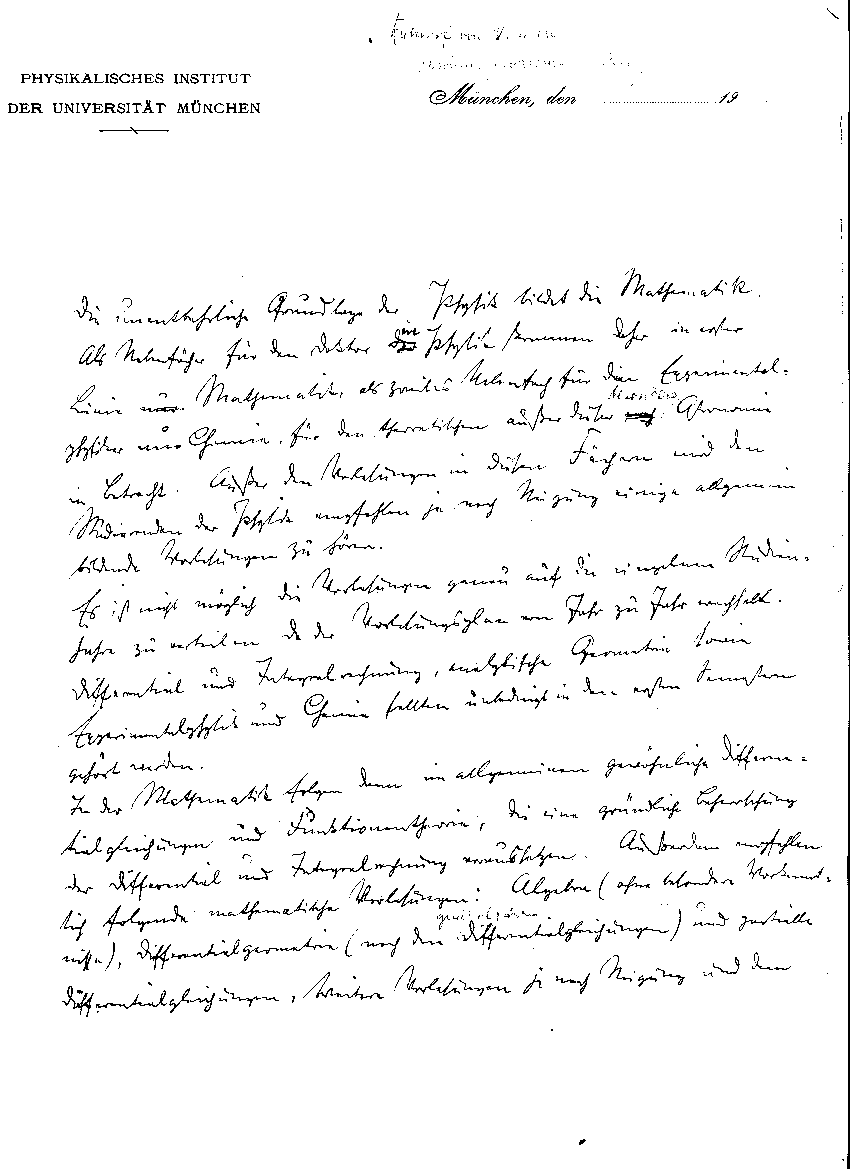 Entwurf von
PHYSIKALISCHES INSTITUT
DER UNIVERSITÄT MÜNCHEN
München, den 19
Die unentbehrliche Grundlage der Physik bildet die Mathematik.
Als Nebenfächer für den Doktor in Physik kommen daher in erster
Linie nur Mathematik, als zweites Nebenfach für den Experimental-
physiker nur Chemie, für den theoretischen außer dieser Astronomie
in Betracht. Außer den Vorlesungen in diesen Fächern wird den
Studierenden der Physik empfohlen je nach Neigung einige allgemein
bildende Vorlesungen zu hören.
Es ist nicht möglich die Vorlesungen genau auf die einzelnen Studien-
Jahre zu verteilen da der Vorlesungsplan von Jahr zu Jahr wechselt.
Differential und Integralrechnung, analytische Geometrie sowie
Experimentalphysik und Chemie sollten unbedingt in den ersten Semestern
gehört werden.
In der Mathematik folgen dann im allgemeinen gewöhnliche Differen-
tialgleichungen und Funktionentheorie, die eine gründliche Beherrschung
der Differential und Integralrechnung voraussetzen. Außerdem empfehlen
sich folgende mathematische Vorlesungen: Algebra (ohne besondere Vorkennt-
nisse), Differentialgeometrie (nach den gewöhnlichen Differentialgleichungen) und partielle
Differentialgleichungen, weitere Vorlesungen je nach Neigung und dem